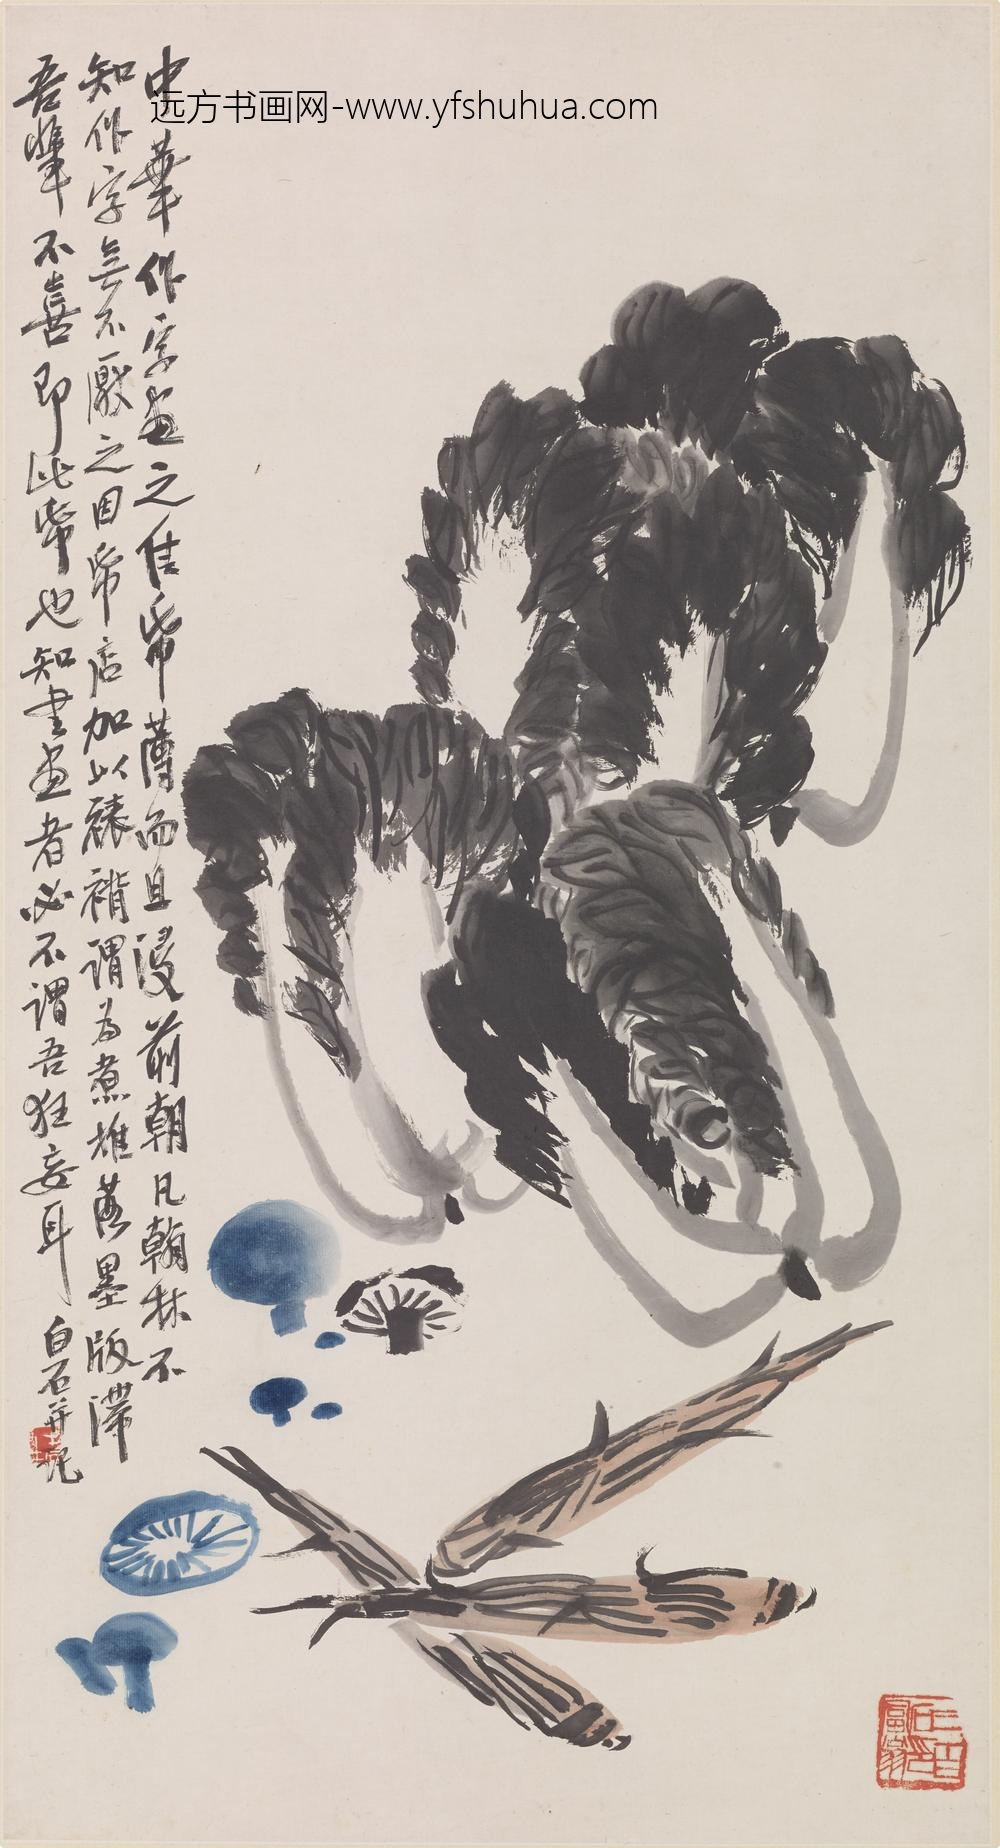 远方书画网-www.yfshuhua.com
中華作字畫之佳帋薄而且浸前朝凡翰林不
知作字無不厭之因帋店加以裱褙謂為煮捶落墨版滯
吾輩不喜即此帋也知書畫者必不謂吾狂妄耳
白石并記